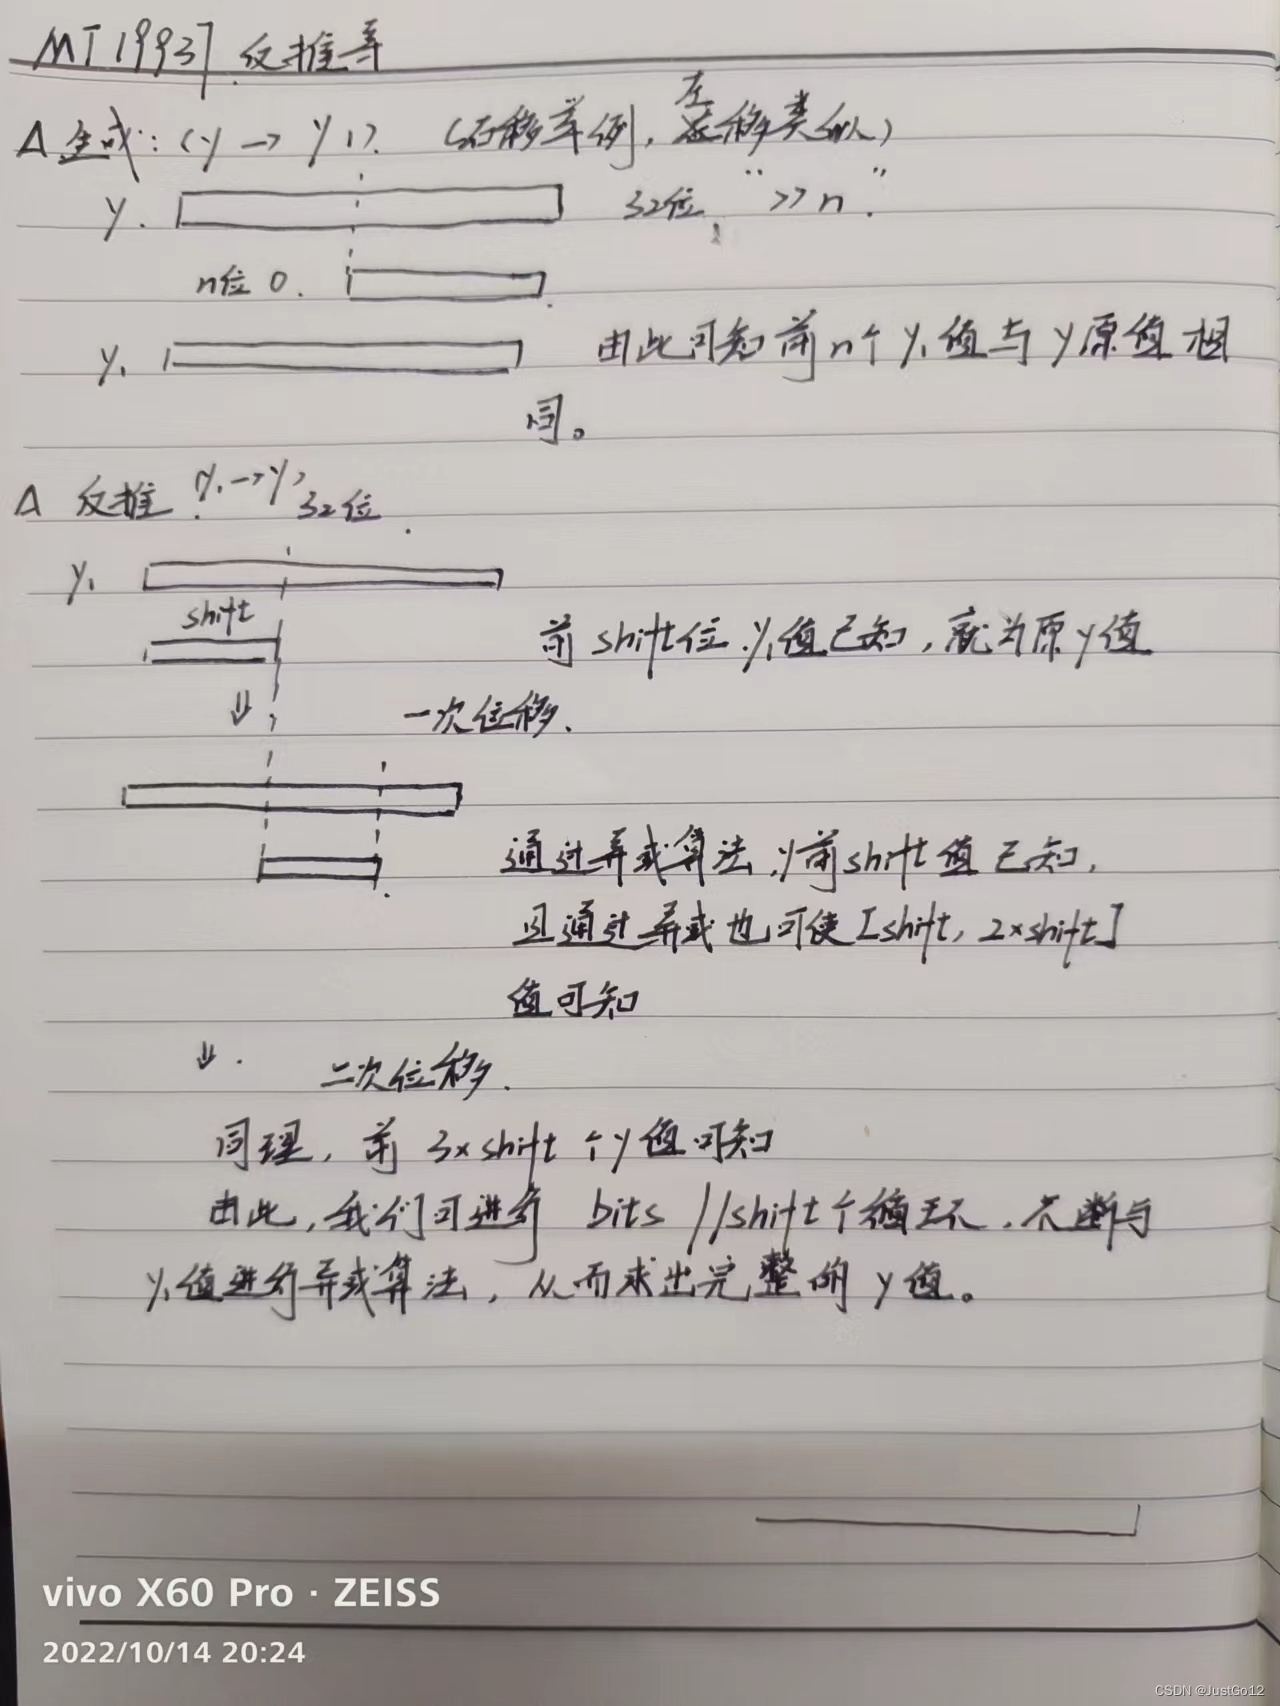 MT19937 反推导
Δ 生成：(y → y1). (右移举例，左移类似)
y. 32位 ">> n"
n位 0.
y1 由此可知前n个y1值与y原值相
同。
Δ 反推 (y1→y)
32位
y1
shift
前shift位y1值已知，就为原y值
⇓ 一次位移.
通过异或算法，y前shift值已知，
且通过异或也可使[shift, 2×shift]
值可知
⇓ 二次位移.
同理，前 3×shift 个y值可知
由此，我们可进行 bits //shift个循环，不断与
y1值进行异或算法，从而求出完整的y值。
vivo X60 Pro · ZEISS
2022/10/14 20:24
CSDN @JustGo12